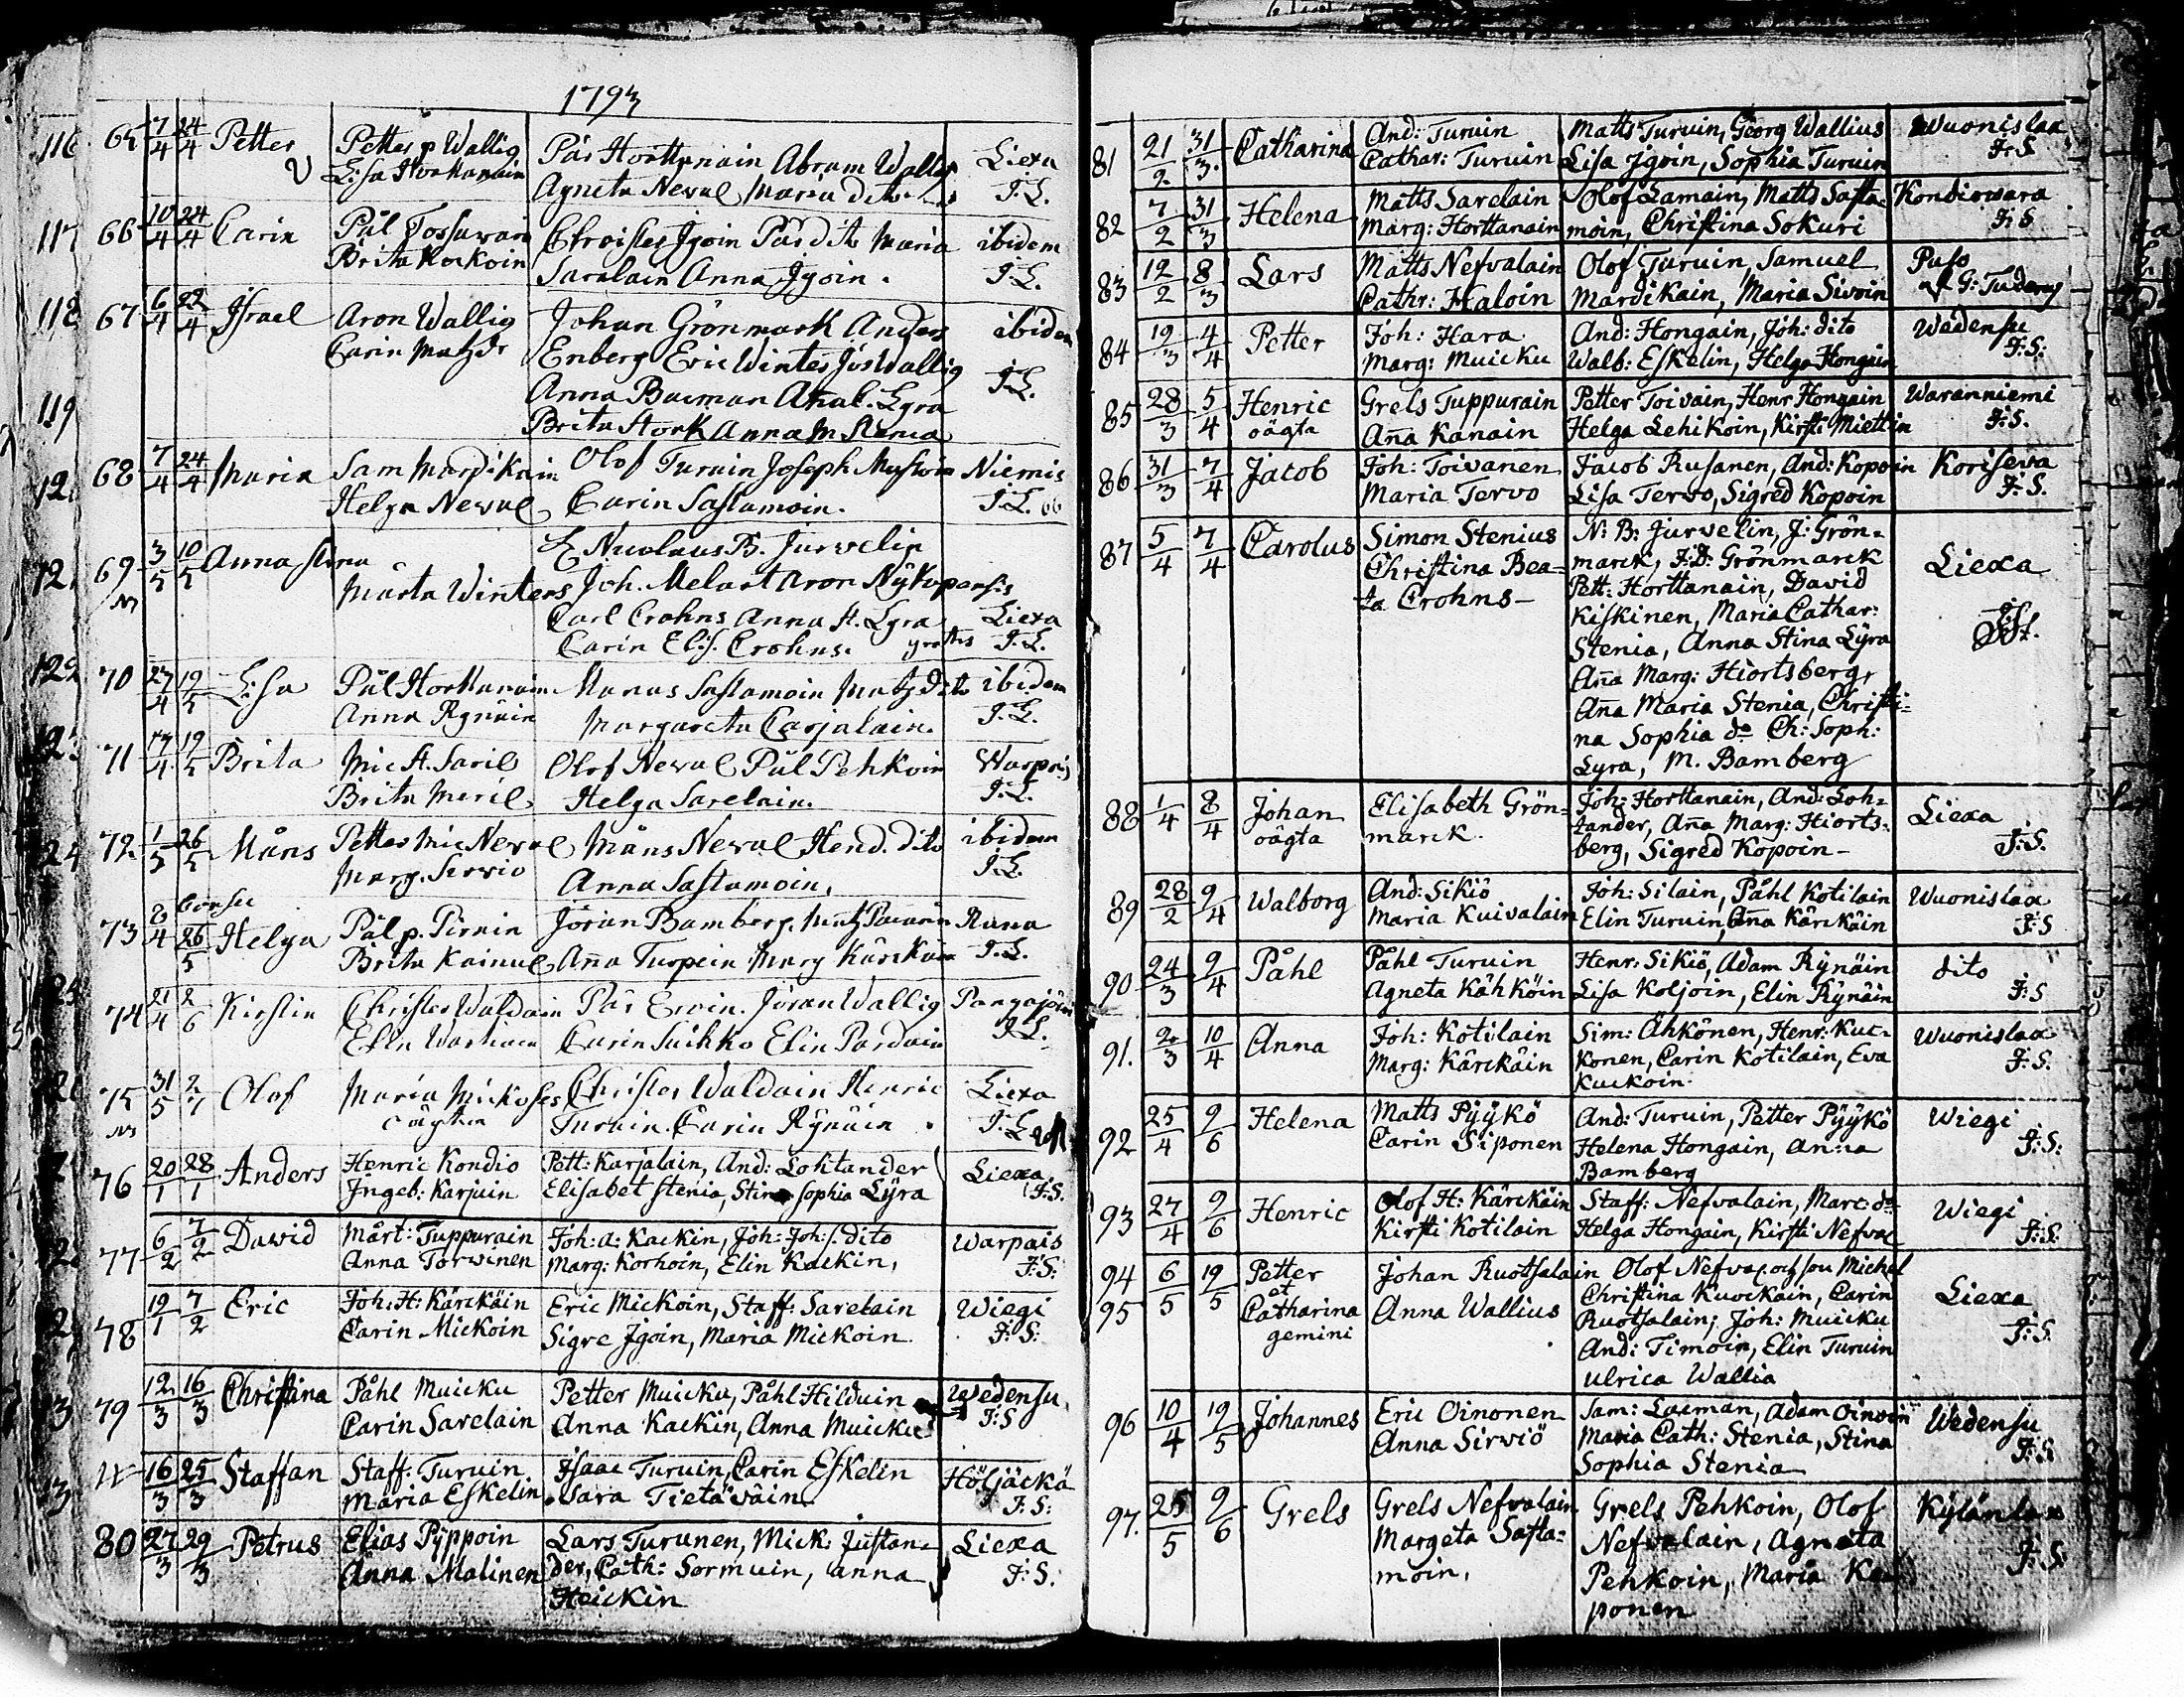 1793
116 65 17/4 24/4 Petter Petter p Wallig Pär Horttanain Abram Wallig Liexa
Lisa Horttanain Agneta Neval Maria dito J:L.
117 66 10/4 24/4 Carin Pål Tossavain Christer Jgoin Pär dito Maria ibidem
Brita Kockoin Saralain Anna Jgoin. J:L.
118 67 6/4 22/4 Jsrael Aron Wallig Johan Grönmark Anders ibidem
Carin Matzdr Enberg Eric Winter Jös Wallig J:L.
119 Anna Bacman Lyra
Brita Stork Anna M Stenia
68 7/4 24/4 Maria Sam Mardikain Olof Turuin Joseph Niemis
Helga Neval Carin Sastamoin. J:L.
69 3/5 10/5 Anna Stina Nicolaus B. Jurvelin
Märta Winters Joh. Melart Aron Nykopensis
Carl Crohns Anna St. Lyra Liexa
Carin Elis. Crohns. J:L.
70 27/4 19/5 Lisa Pål Horttanain Sastamoin Matz dito ibidem
Anna Rynäin Margareta Carjalain. J:L.
71 17/4 19/5 Brita Mic Saril Olof Neval Pål Pehkoin Warpais
Brita Meril Helga Sarelain. J:L.
72 1/5 26/5 Måns Petter Mic Neval Måns Neval Hend. dito ibidem
Marg. Sirvio Anna Sastamoin, J:L.
73 8/4 26/5 Helga Pål p. Pirnin Jöran Bamberg. Matz
Brita Kainul Aña Turpein Marg Kärckäin J:L.
74 21/4 2/6 Kirstin Christer Waldain Pär Ervin. Jöran Wallig
Elin Carin Suikko Elin Pardain J:L.
75 31/5 2/7 Olof Maria Mickos Christer Waldain Henric Liexa
oägta Turuin. Carin Rynäin. J:L
76 20/1 28/1 Anders Henric Kondio Pett: Karjalain, And: Lohtander Liexa
Jngeb: Karjuin Elisabet Stenia, Stina Sophia Lÿra J:S.
77 6/2 7/2 David Mårt: Tuppurain Joh: a: Kackin, Joh: Joh: s. dito Warpais
Anna Torwinen Marg: Korhoin, Elin Kackin, J:S:
78 19/1 7/2 Eric Joh: H: Kärckäin Eric Mickoin, Staff: Sarelain Wiegi
Carin Mickoin Sigre Jgoin, Maria Mickoin J:S:
79 12/3 16/3 Christina Påhl Muicku Petter Muicku, Påhl Hilduin Wedensu
Carin Sarelain Anna Kackin, Anna Muicku J:S
16/3 25/3 Staffan Staff: Turuin Jsaac Turuin, Carin Eskelin Höljäckä
Maria Eskelin Sara Tietäväin. J:S:
80 27/3 29/3 Petrus Elias Pyppoin Lars Turunen, Mick: Justan- Liexa
Anna Malinen der, Cath: Sormuin, anna J:S.
Heickin
81 21/2 31/3 Catharina And: Turuin Matts Turuin, Georg Wallius Wuonislax
Cathar: Turuin Lisa Jgoin, Sophia Turuin J:S
82 7/2 31/3 Helena Matts Sarelain Olof Lamain, Matts Sasta- Kondiowara
Marg: Horttanain moin, Christina Sokuri J:S
83 12/2 8/3 Lars Matts Nefvalain Olof Turuin, Samuel Puso
Cathr: Haloin Mardikain, Maria Sivoin af G: Tuderus
84 19/3 4/4 Petter Joh: Hara And: Hongain, Joh: dito Wedensu
Marg: Muicku Walb: Eskelin, Helga Hongain J:S:
85 28/3 5/4 Henric Grels Tuppurain Petter Toivain, Henr Hongain Waranniemi
oägta Aña Kanain Helga Lehikoin, Kirsti Miettin J:S.
86 31/3 7/4 Jacob Joh: Toivanen Jacob Rusanen, And: Kopoin Koriseva
Maria Tervo Lisa Tervo, Sigred Kopoin J:S.
87 5/4 7/4 Carolus Simon Stenius N: B: Jurvelin, J: Grön-
Christina Bea- marck, J:D: Grönmarck Liexa
ta Crohns- Pett: Horttanain, David
Kiskinen, Maria Cathar:
Stenia, Anna Stina Lÿra
Aña Marg: Hiortsberg,
Aña Maria Stenia, Christi-
na Sophia do Ch: Soph:
Lyra, M. Bamberg
88 1/4 8/4 Johan Elisabeth Grön- Joh: Horttanain, And: Loh- Liexa
oägta marck. tander, Aña Marg: Hiorts- J:S.
berg, Sigred Kopoin-
89 28/2 9/4 Walborg And: Sikiö Joh: Silain, Påhl Kotilain Wuonislax
Maria Kuivalain Elin Turuin, Aña Kärckäin J:S
90 24/3 9/4 Påhl Påhl Turuin Henr: Sikiö, Adam Rÿnäin dito
Agneta Kähköin Lisa Koljoin, Elin Rÿnäin J:S
91. 2/3 10/4 Anna Joh: Kotilain Sim: Ähkönen, Henr: Kuc- Wuonislax
Marg: Kärckäin konen, Carin Kotilain, Eva J:S.
Kuckoin
92 25/4 9/6 Helena Matts Pÿÿkö And: Turuin, Petter Pÿÿkö Wiegi
Carin Siponen Helena Hongain, anna J:S:
Bamberg
93 27/4 9/6 Henric Olof H: Kärckäin Staff: Nefvalain, Marc: do Wiegi
Kirsti Kotilain Helga Hongain, Kirsti Nefval J:S:
94 6/5 19/5 Petter Johan Ruotsalain Olof Nefval. och son Michel
95 et Catharina Anna Wallius Christina Kuockain, Carin Liexa
gemini Ruotsalain; Joh: Muicku J:S.
And: Timoin, Elin Turuin
Ulrica Wallia
96 10/4 19/5 Johannes Eric Oinonen Sam: Lacman, Adam Oinoin Wedensu
Anna Sirviö Maria Cath: Stenia, Stina J:S
Sophia Stenia
97. 25/5 9/6 Grels Grels Nefvalain Grels Pehkoin, Olof Kÿlänlax
Margeta Sasta- Nefvalain, Agneta J:S
moin, Pehkoin, Maria
ponen